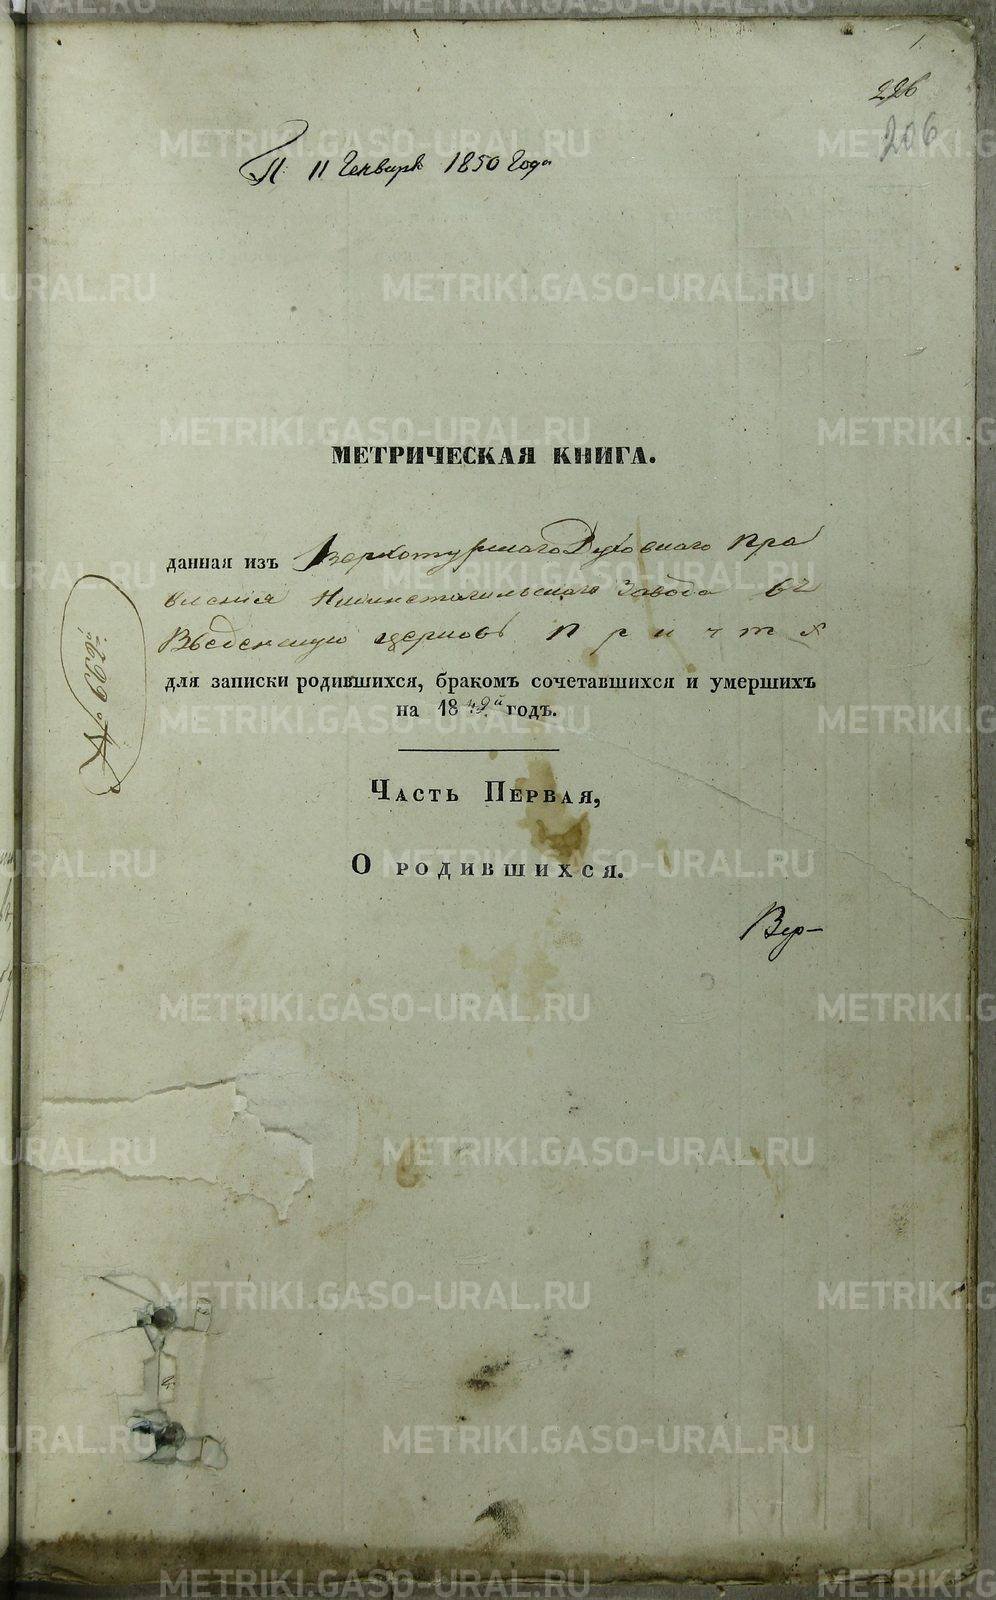 1.
226
206
П. 11 Генваря 1850 Года
МЕТРИЧЕСКАЯ КНИГА.
данная изъ Верхотурскаго Духовнаго Пра
вленія Нижнетагильскаго Завода въ
Введенскую церковь Причтъ
для записки родившихся, бракомъ сочетавшихся и умершихъ
на 1849й годъ.
Часть Первая,
О родившихся.
Вер-
METRIKI.GASO-URAL.RU